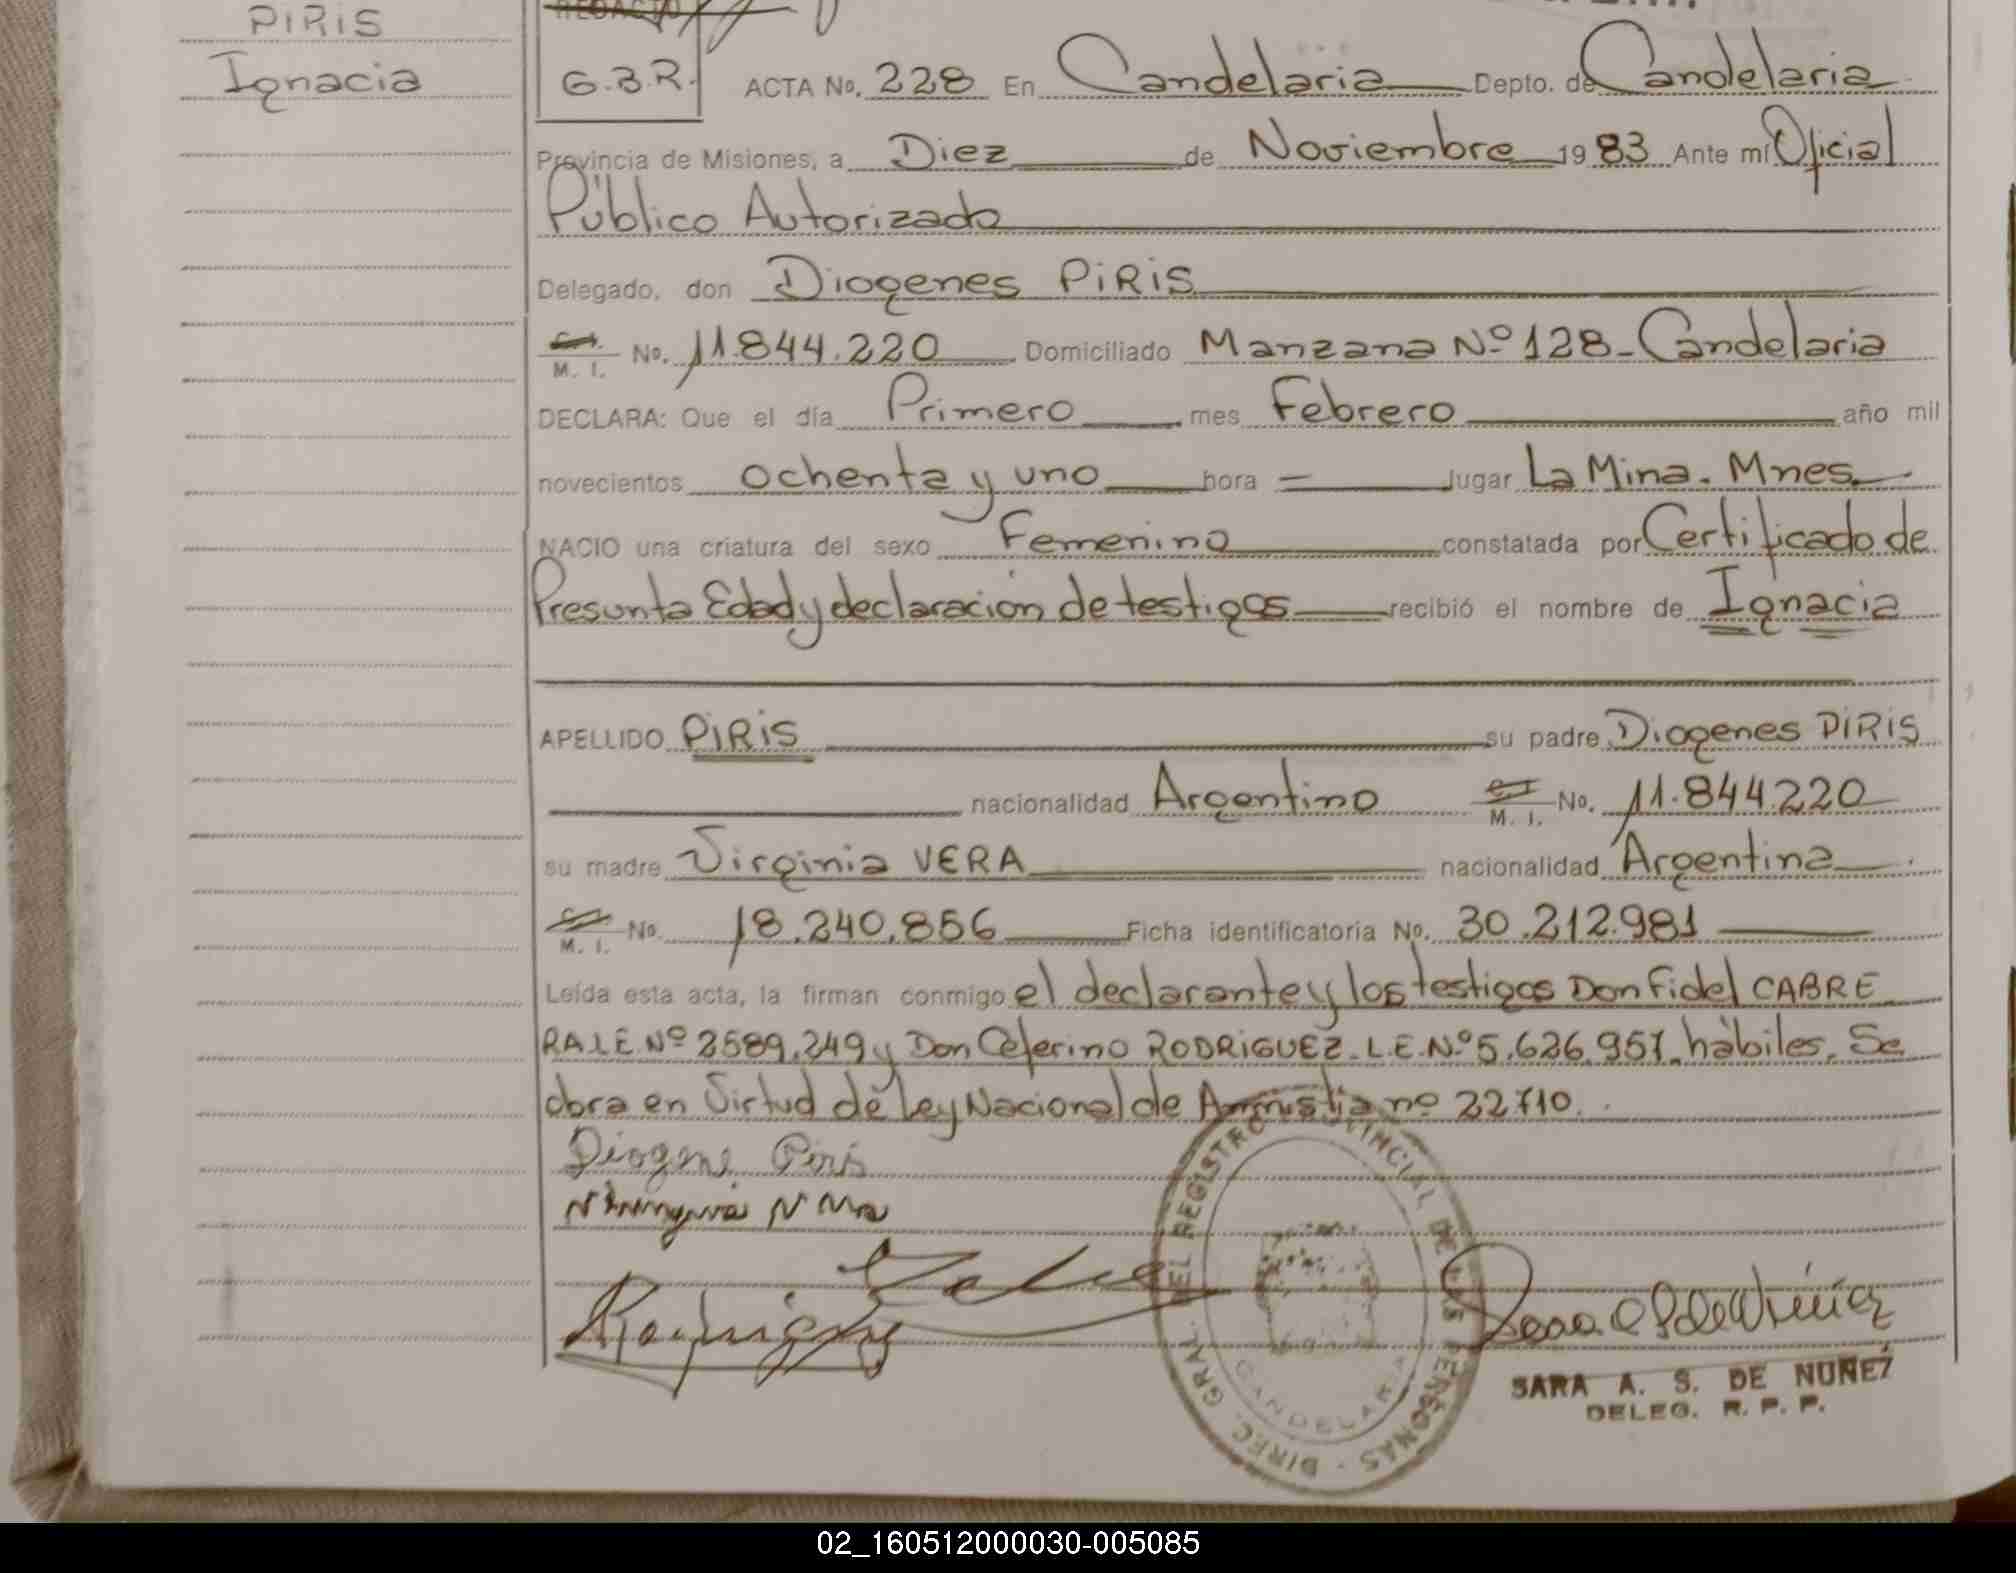 PIRIS
Ignacia
REDACTO
G.B.R.
ACTA No. 228 En Candelaria Depto. de Candelaria
Provincia de Misiones, a Diez de Noviembre 1983 Ante mí Oficial
Público Autorizado
Delegado, don Diogenes PIRIS
M. I. No. 11.844.220 Domiciliado Manzana Nº 128 - Candelaria
DECLARA: Que el día Primero mes Febrero año mil
novecientos ochenta y uno hora = lugar La Mina. Mnes.
NACIO una criatura del sexo Femenino constatada por Certificado de
Presunta Edad y declaración de testigos recibió el nombre de Ignacia
APELLIDO PIRIS su padre Diogenes PIRIS
nacionalidad Argentino M. I. No. 11.844.220
su madre Virginia VERA nacionalidad Argentina
M. I. No. 18.240.856 Ficha identificatoria No. 30.212.981
Leída esta acta, la firman conmigo el declarante y los testigos Don Fidel CABRE
RA L.E. Nº 2589.249 y Don Ceferino RODRIGUEZ. L.E. Nº 5.626.951. hábiles. Se
obra en Virtud de Ley Nacional de Amnistia nº 22710.
Diogene Piris
Rodriguez
DIREC. GRAL. DEL REGISTRO PROVINCIAL DE LAS PERSONAS
CANDELARIA
SARA A. S. DE NUÑEZ
DELEG. R. P. P.
02_160512000030-005085